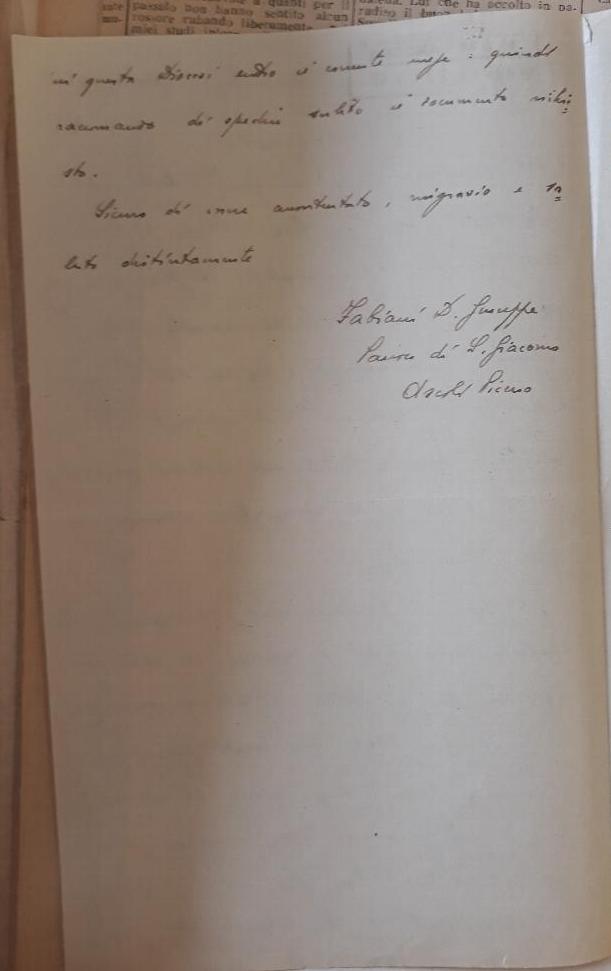 sate passato non hanno sentito alcun
rossore rubando liberamente
miei studi
a quanti per il
Lui che ha accolto in pa-
in questa Diocesi entro il corrente mese: quindi
raccomando di spedire subito il documento richie
sto.
Sicuro di essere accontentato, ringrazio e sa
luto distintamente
Fabiani D. Giuseppe
Parroco di S. Giacomo
Ascoli Piceno